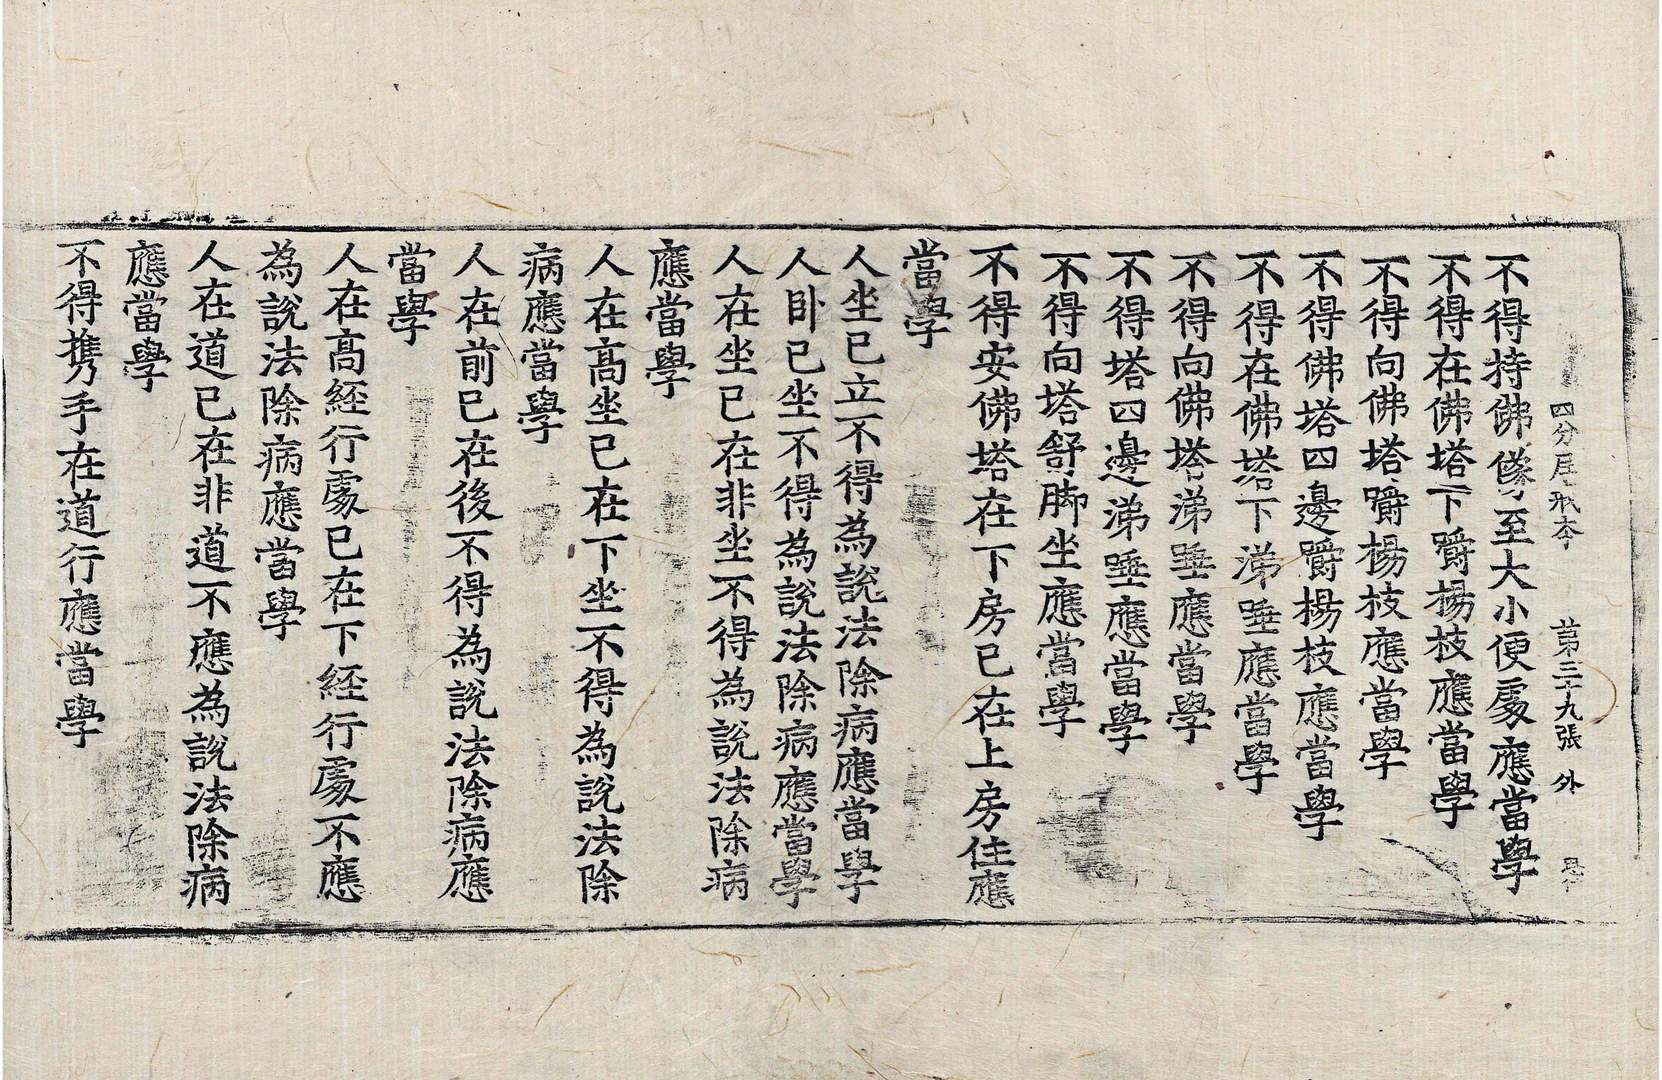 四分尼戒本 第三十九張 外
不得持佛像至大小便處應當學
不得在佛塔下嚼楊枝應當學
不得向佛塔嚼楊枝應當學
不得佛塔四邊嚼楊枝應當學
不得在佛塔下涕唾應當學
不得向佛塔涕唾應當學
不得塔四邊涕唾應當學
不得向塔舒脚坐應當學
不得安佛塔在下房已在上房住應
當學
人坐已立不得為說法除病應當學
人卧已坐不得為說法除病應當學
人在坐已在非坐不得為說法除病
應當學
人在高坐已在下坐不得為說法除
病應當學
人在前已在後不得為說法除病應
當學
人在高経行處已在下経行處不應
為說法除病應當學
人在道已在非道不應為說法除病
應當學
不得攜手在道行應當學